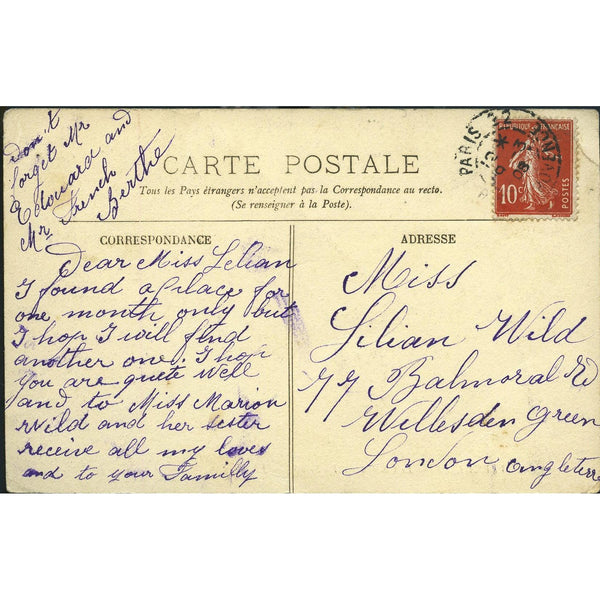 Don't
forget Mr
Edouard and
Mr French
Berthe
CARTE POSTALE
Tous les Pays étrangers n'acceptent pas la Correspondance au recto.
(Se renseigner à la Poste).
CORRESPONDANCE
Dear Miss Lelian
I found a place for
one month only but
I hop I will find
another one. I hop
you are quete well
and to Miss Marion
Wild and her sester
receive all my loves
and to your Familly
ADRESSE
Miss
Lilian Wild
77 Balmoral Rd
Willesden Green
London Angleterre
PARIS 22
RÉPUBLIQUE FRANÇAISE
10c
POSTES